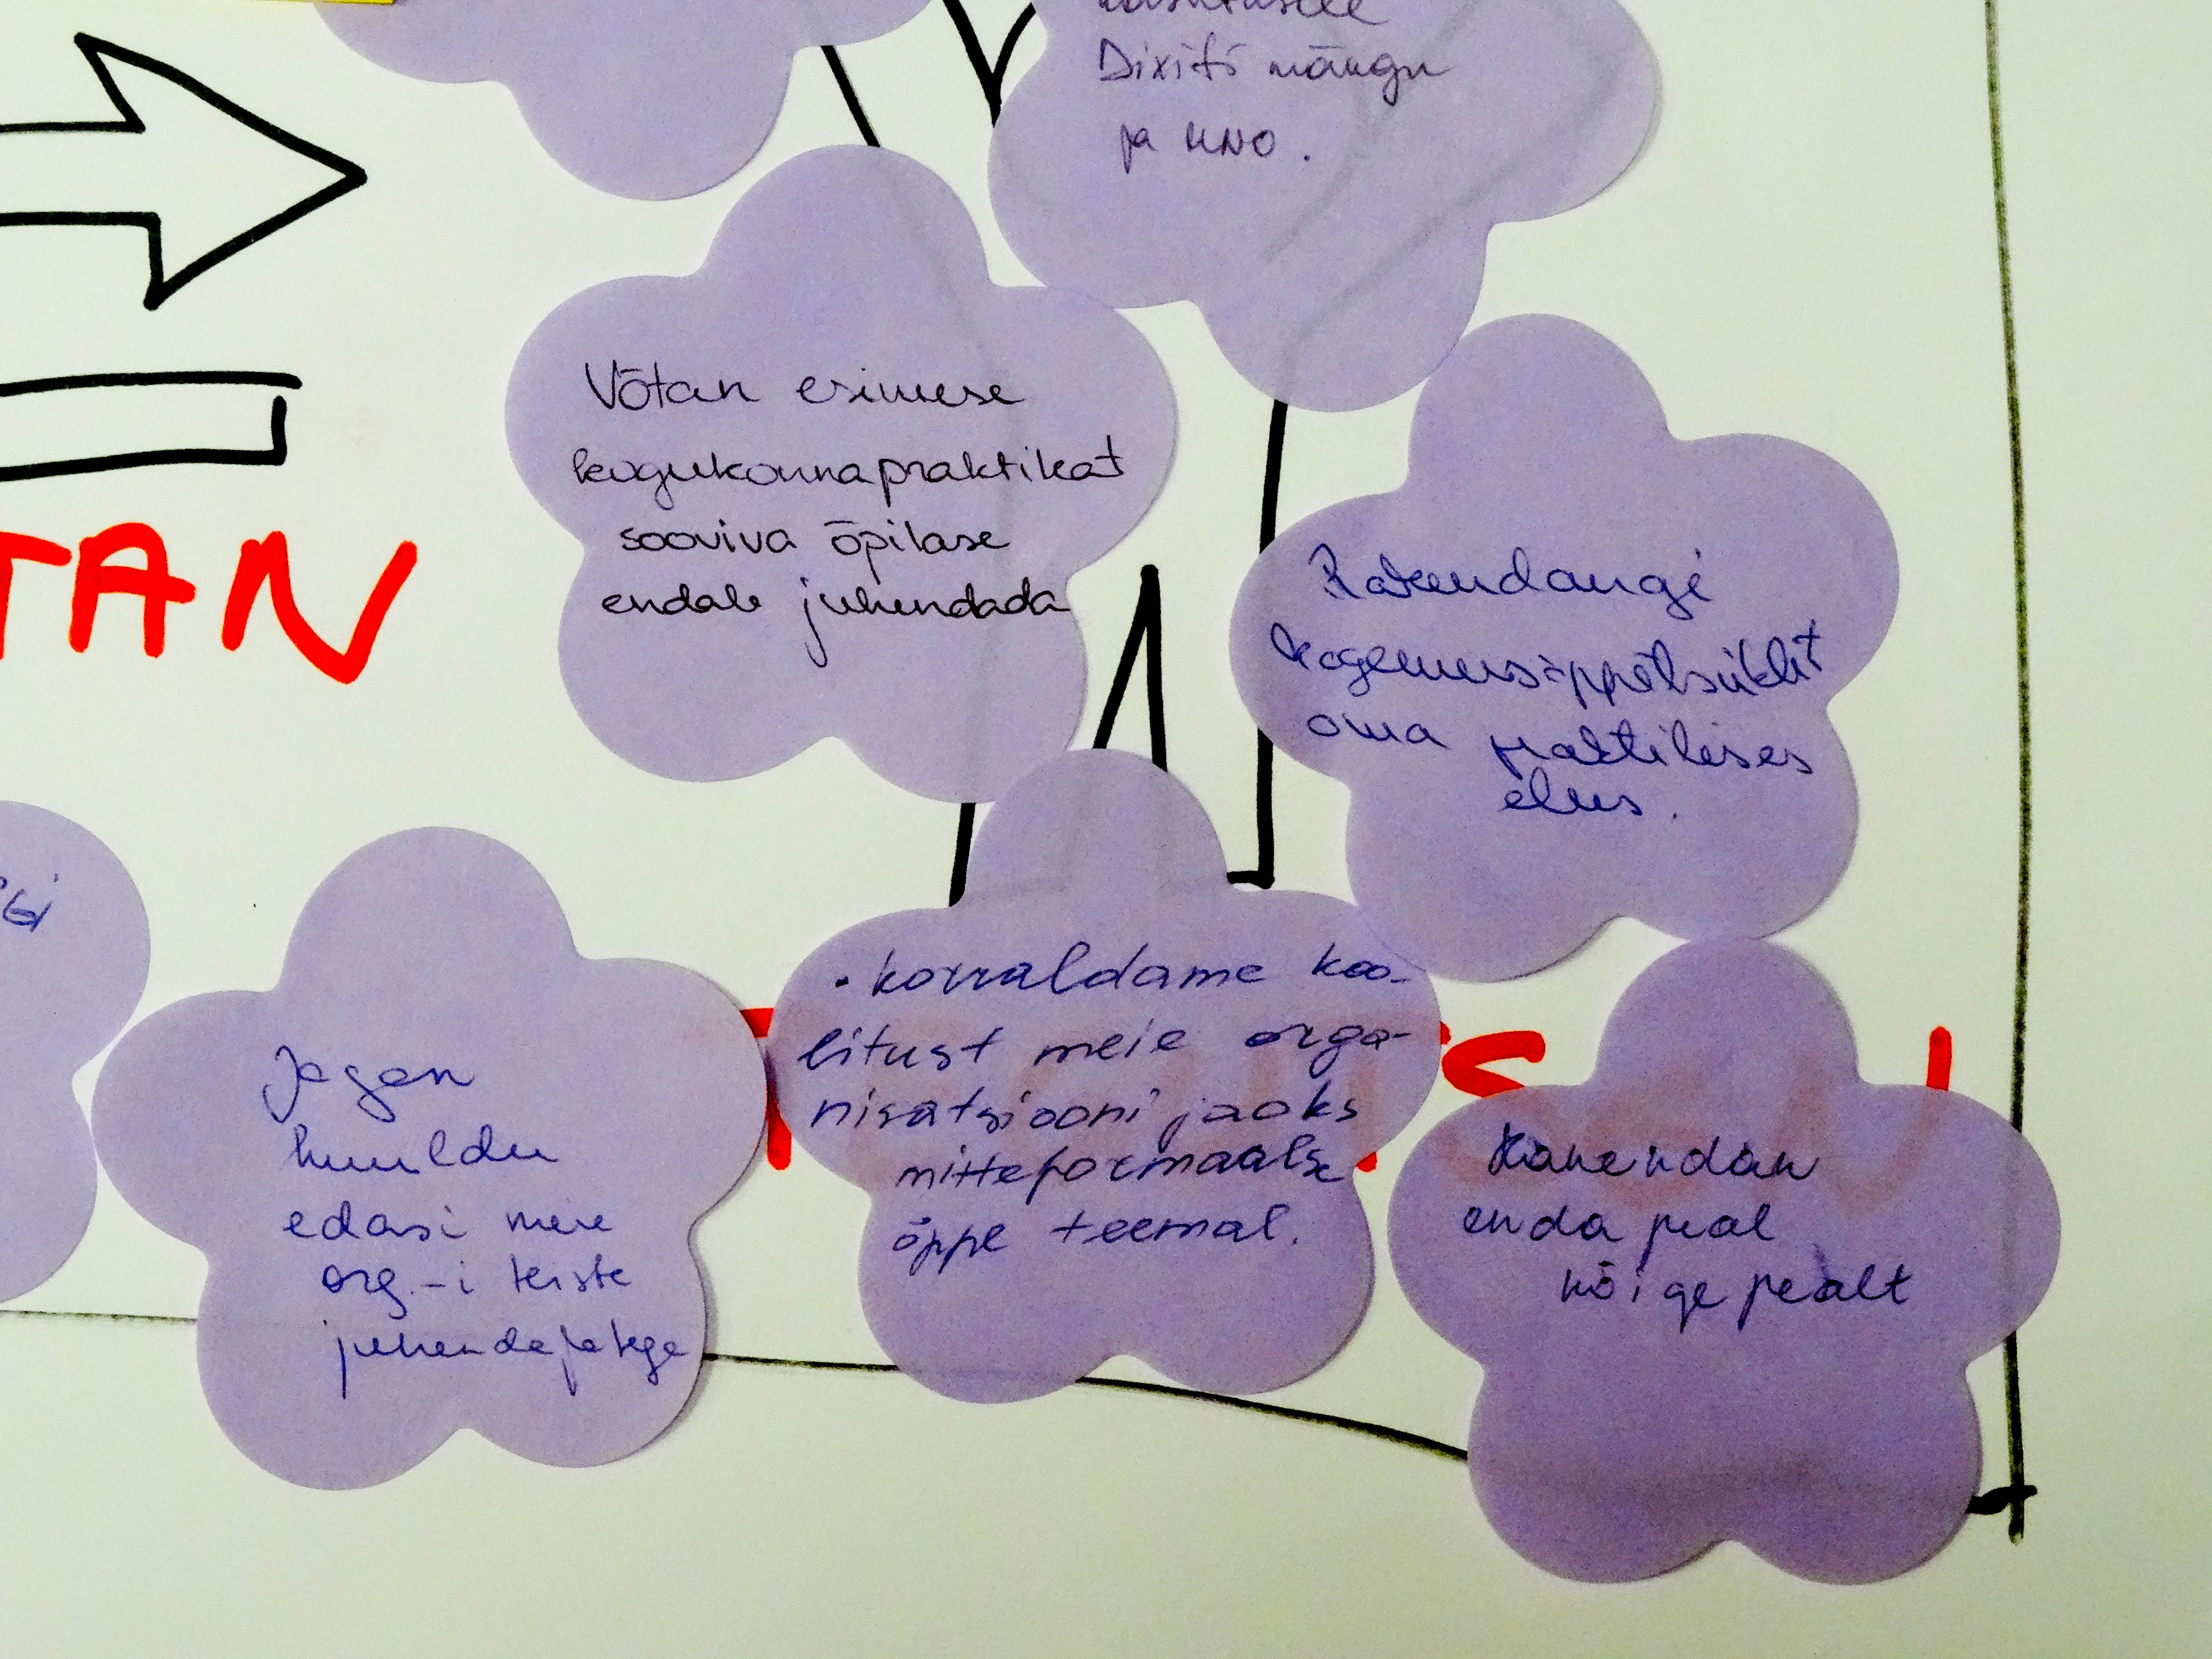 Dixiti mängu
ja UNO.
Võtan esimese
kogukonnapraktikat
sooviva õpilase
endale juhendada
TAN
Rakendangi
kogemusõppetsüklit
oma praktilises
elus.
Jagan
kuuldu
edasi meie
org.-i teiste
juhendajatega
• korraldame koo-
litust meie orga-
nisatsiooni jaoks
mitteformaalse
õppe teemal.
Rakendan
enda peal
kõige pealt